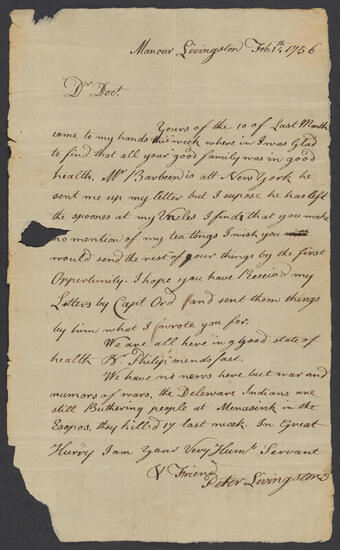 Manour Livingston Feb. 1th. 1756
Dr. Doct.
Yours of the 10 of Last Month
come to my hands this week where in I was Glad
to find that all your good family was in good
health. Mr. Barbeen is att New York he
sent me up my letter but I supose he has left
the spoones at my Uncles I find that you make
no mention of my tea things I wish you
would send the rest of your things by the first
Oppertunity. I hope you have Received my
Letters by Capt. Ord and sent them things
by him what I wrote you for.
We are all here in good state of
health Br. Philip mends fast.
We have no news here but war and
rumors of wars, the Deleware Indians are
still Buthering people at Menasink in the
Esopos, they killed 17 last week. In Great
Hurry I am Your Very Humb. Servant
& Friend
Peter Livingston